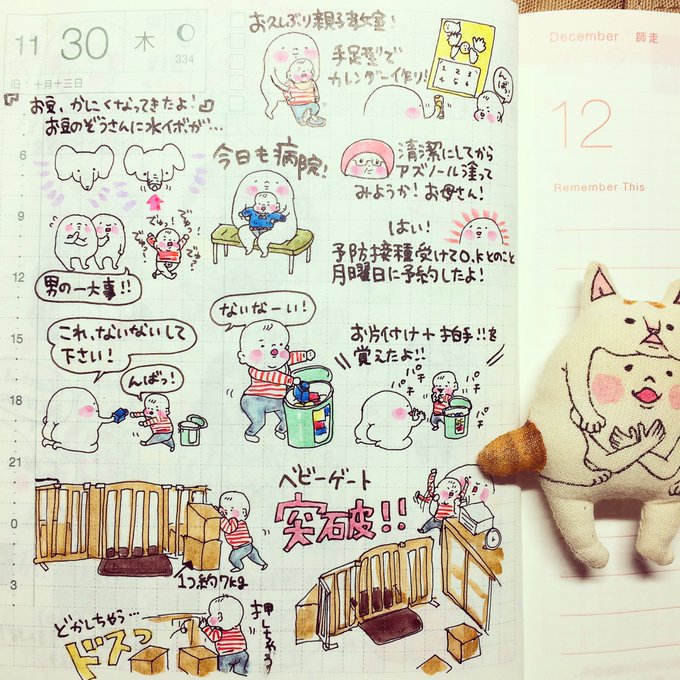 11 30 木
334
旧:十月十三日
お久しぶり親子教室!
手足型で
カレンダー作り!
んばっ!
お豆、かにくなってきたよ!
お豆のぞうさんに水イボが…
でゅっ!
でゅっ!
でゅっ!
男の一大事!!
今日も病院!
清潔にしてから
アズノール塗って
みようか!お母さん!
はい!
予防接種受けてO.Kとのこと
月曜日に予約したよ!
これ、ないないして
下さい!
んばっ!
ないなーい!
お片付け+拍手!!を
覚えたよ!!
パチ
パチ
パチ
パチ
ベビーゲート
突破!!
1つ約7kg
どかしちゃう…
ドスっ
押しちゃう
6
9
12
15
18
21
0
3
December 師走
12
Remember This